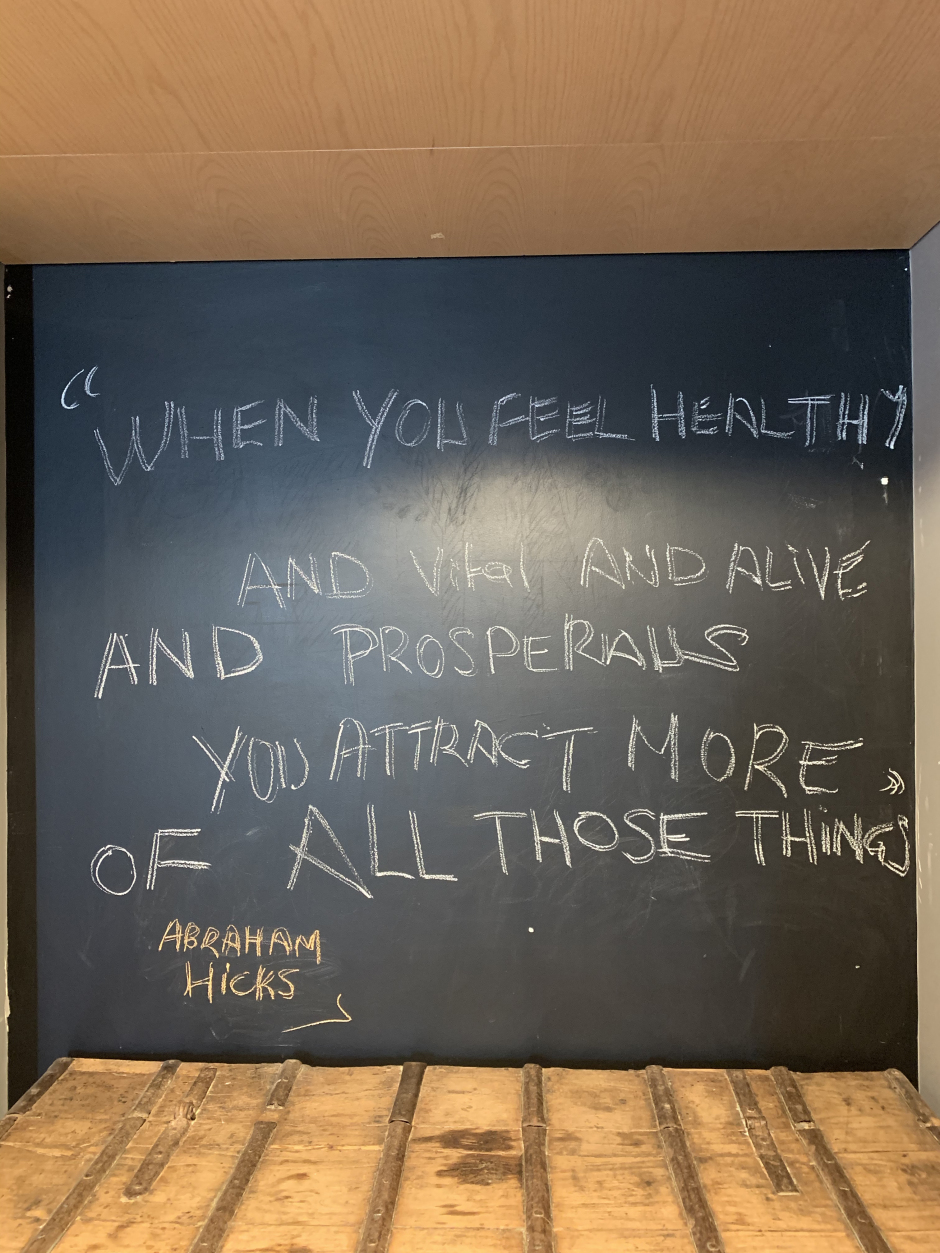 “WHEN YOU FEEL HEALTHY
AND Vital AND ALiVE
AND PROSPERAUS
YOU ATTRACT MORE
OF ALL THOSE THiNGS »
ABRAHAM
HiCKS